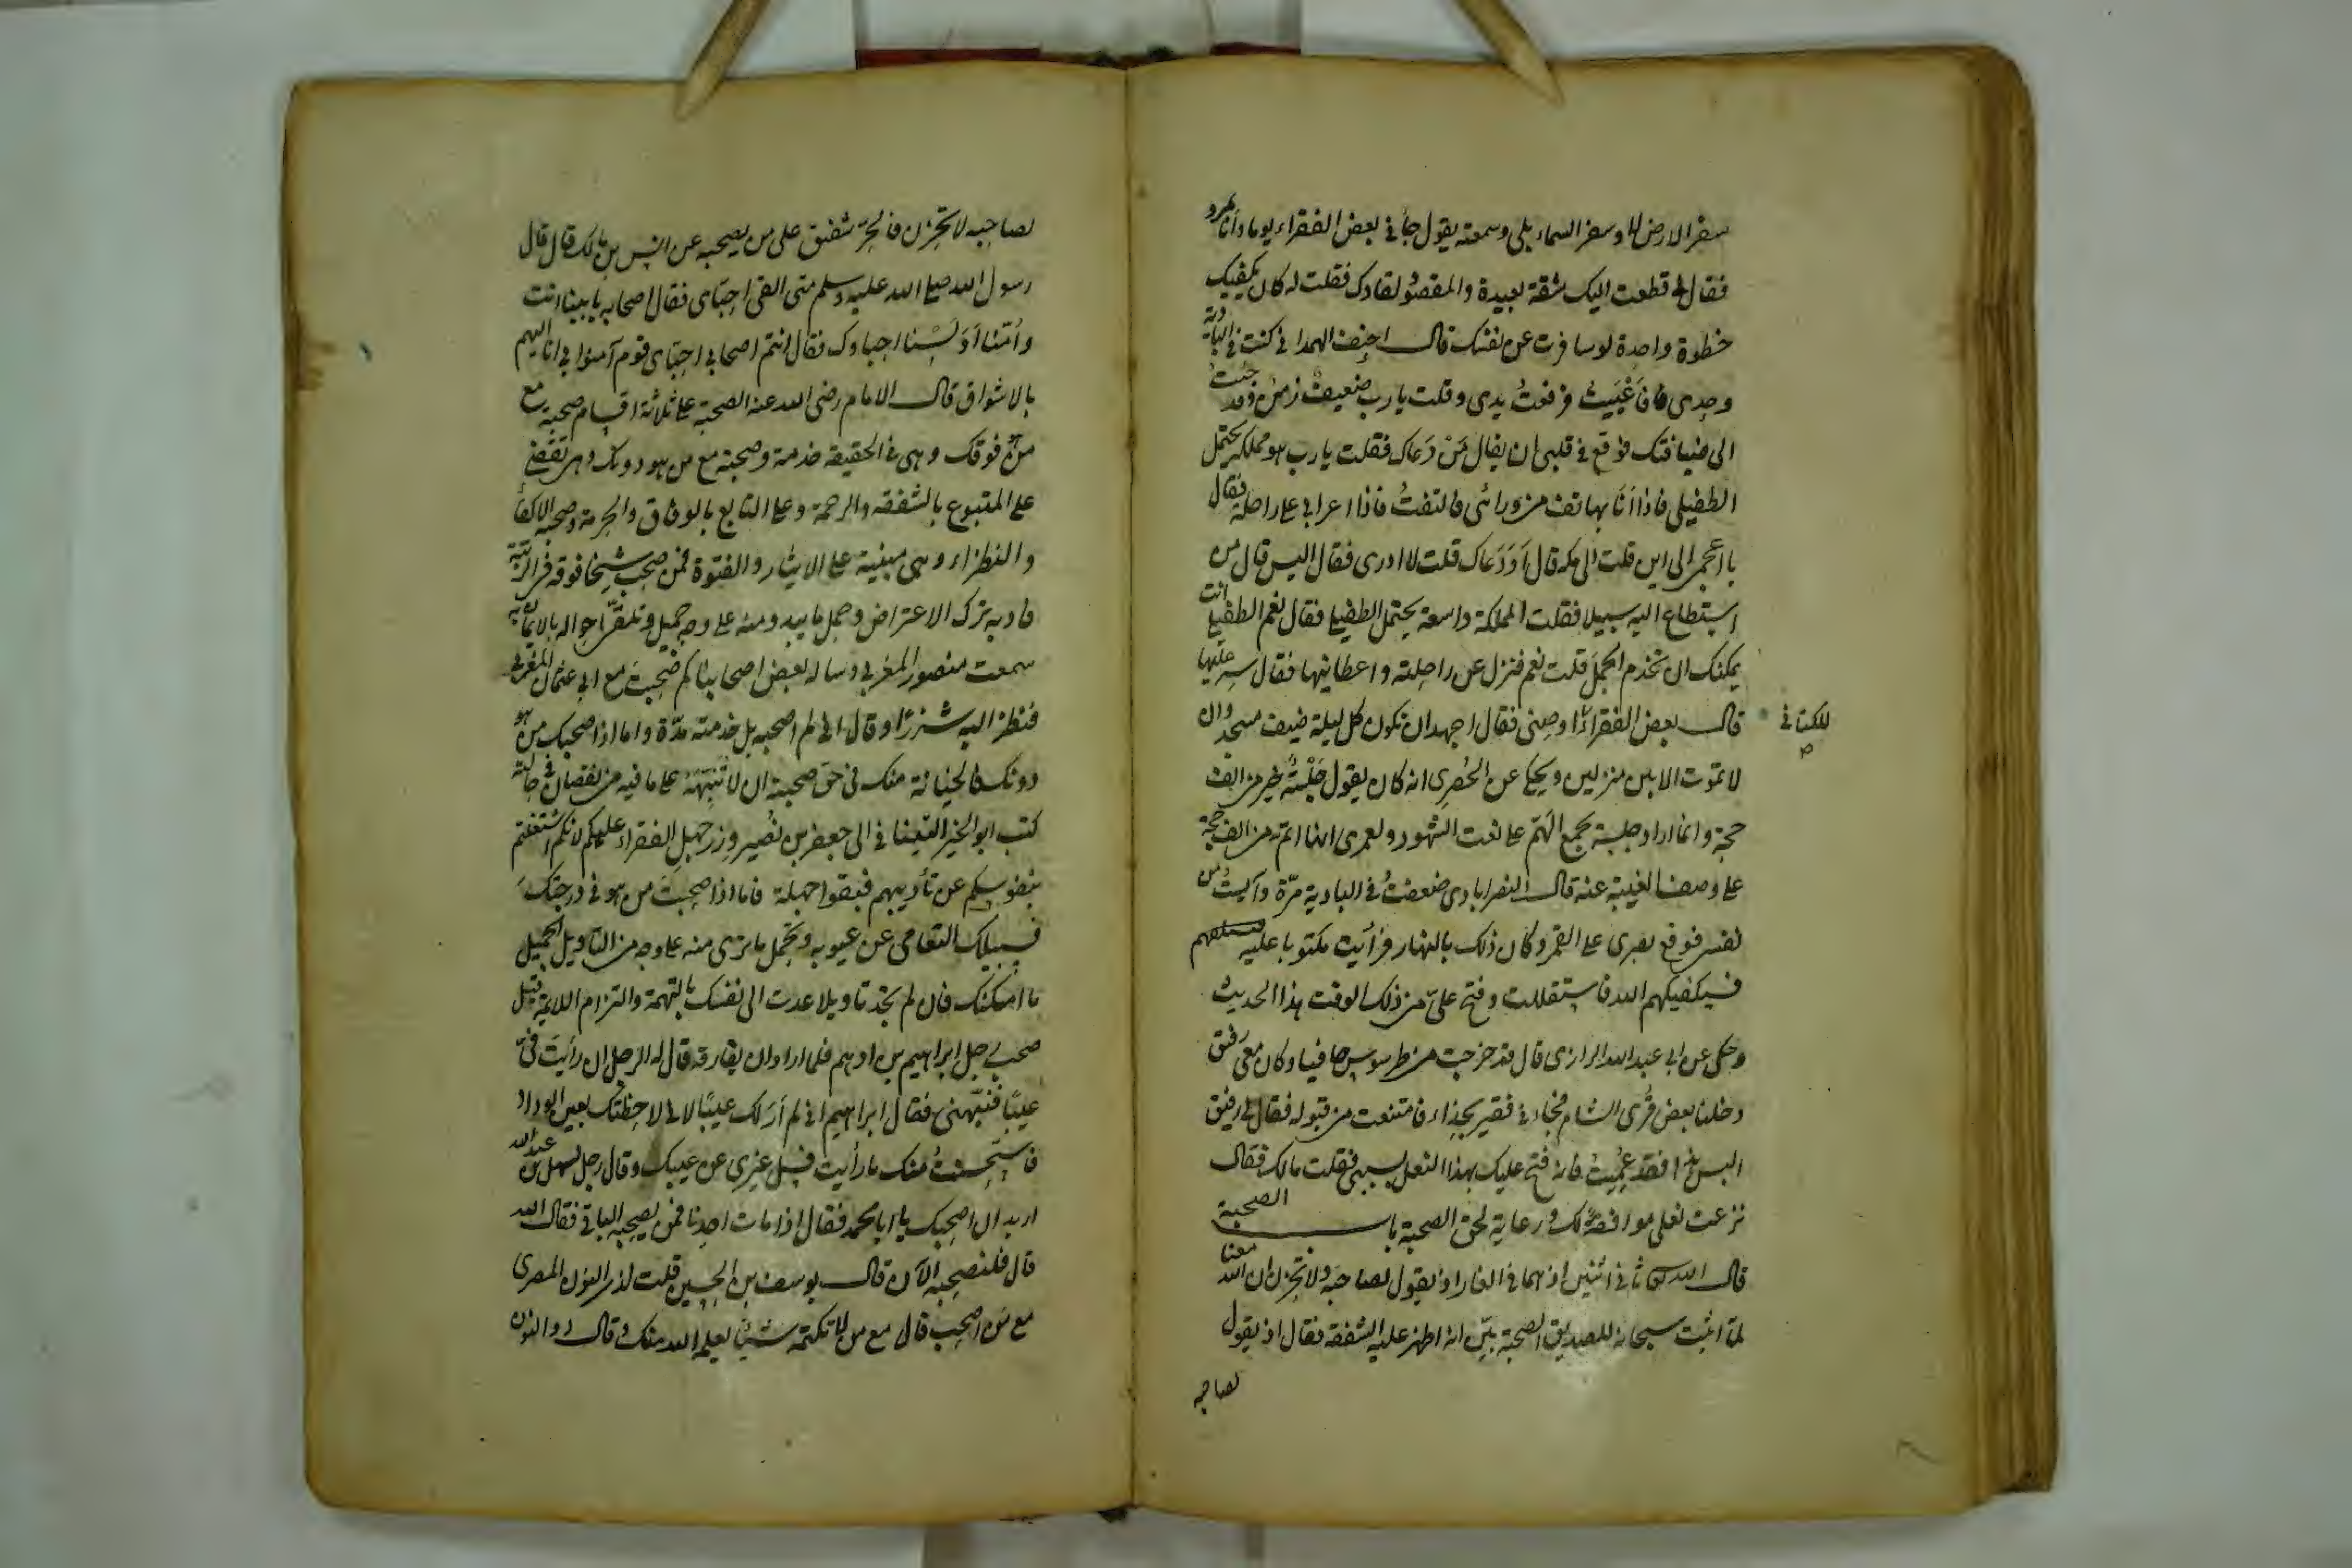 سفر الارض لا وسفر السماء بلى وسمعته يقول جاءنى بعض الفقراء يوما وانا بمرو
فقال لى قطعت اليك شقة بعيدة والمقصود لقاؤك فقلت له كان يكفيك
خطوة واحدة لو سافرت عن نفسك قال احنف الهمدانى كنت فى البادية
وحدى فاَعْيَيتُ فرفعتُ يدى وقلت يا رب ضعيفٌ زمنٌ وقد جئتُ
الى ضيافتك فوقع فى قلبى ان يقال مَنْ دَعاك فقلت يا رب هو مملكة يحتمل
الطفيلى فاذا اَنَا بهاتف من ورائى فالتفتُ فاذا اعرابى على راحلة فقال
يا اعجمى الى اين قلت الى مكة قال اَوَ دَعاك قلت لا ادرى فقال اليس قال من
استطاع اليه سبيلا فقلت المملكة واسعة يحتمل الطفيلى فقال نعم الطفيلى انت
يمكنك ان تخدم الجمل قلت نعم فنزل عن راحلته واعطانيها فقال سِر عليها
قال بعض الفقراء للكتانى اوصنى فقال اجهد ان تكون كل ليلة ضيف مسجد وان
لا تموت الا بين منزلين ويحكى عن الحُصرى انه كان يقول جَلْسَةٌ خير من الف
حجة وانما اراد جلسة تجمع الهَمّ على نعت الشهود ولعمرى انها اتمّ من الف حجة
على وصف الغيبة عنه قال النصراباذى ضعفتُ فى البادية مرّة وآيستُ من
نفسى فوقع بصرى على القمر وكان ذلك بالنهار فرأيت مكتوبا عليه
فسيكفيكهم الله فاستقللت وفتح علىّ من ذلك الوقت هذا الحديث
وحكى عن ابى عبد الله الرازى قال قد خرجت من طرسوس حافيا وكان معى رفيق
دخلنا بعض قُرى الشام فجاءنى فقير بحذاء فامتنعت من قبوله فقال لى رفيق
البس هذا فقد عَمِيتُ فانه فتح عليك بهذا النعل بسببى فقلت مالك فقال
نزعت نعلى موافقة لك ورعاية لحق الصحبة باب الصحبة
قال الله تعالى ثانى اثنين اذ هما فى الغار اذ يقول لصاحبه ولا تحزن ان الله معنا
لمّا اثبت سبحانه للصديق الصحبة بيّن انه اظهر عليه الشفقة فقال اذ يقول
لصاحبه
للكتانى
لصاحبه لا تحزن فالحُرّ شفيق على من يصحبه عن انس بن مالك قال قال
رسول الله صلى الله عليه وسلم متى القى احبّائى فقال اصحابه بابينا انت
وأمّنا اَوَلَسْنا احباؤك فقال انتم اصحابى احبّائى قوم آمنوا بى انا اليهم
بالاشواق قال الامام رضى الله عنه الصحبة على ثلاثة اقسام صحبة مع
من هو فوقك وهى فى الحقيقة خدمة وصحبة مع من هو دونك وهى تقضى
على المتبوع بالشفقة والرحمة وعلى التابع بالوفاق والحرمة وصحبة الاكفاء
والنظراء وهى مبنية على الايثار والفتوة فمن صحب شيخا فوقه فى الرتبة
فادبه ترك الاعتراض وحمل ما يبدو منه على وجه جميل وتلقّى احواله بالايمان به
سمعت منصور المغربى وساله بعض اصحابنا كم صحبتَ مع ابى عثمان المغربى
فنظر اليه شزرًا وقال انى لم اصحبه بل خدمته مدّة واما اذا صحبك من هو
دونك فالخيانة منك فى حق صحبته ان لا تُنَبِّهَهُ على ما فيه من نقصان فى حالته
كتب ابو الخير التيناتى الى جعفر بن نُصير وزر جهل الفقراء عليكم لانكم اشتغلتم
بنفوسكم عن تأديبهم فبقوا جهلة فاما اذا صحِبتَ من هو فى درجتك
فسبيلك التعامى عن عيوبه وتحمل ما ترى منه على وجه من التاويل الجميل
ما امكنك فان لم تجد تاويلا عدت الى نفسك بالتهمة والتزام اللائمة قيل
صحب رجل ابراهيم بن ادهم فلما اراد ان يفارقه قال له الرجل ان رأيتَ فىّ
عيبًا فنبّهنى فقال ابراهيم انى لم اَرَ لك عيبًا لانى لاحظتك بعين الوداد
فاستحسنتُ منك ما رأيت فسل غيرى عن عيبك وقال رجل لسهل بن عبد الله
اريد ان اصحبك يا ابا محمد فقال اذا مات احدنا فمن يصحبه الباقى فقال الله
قال فلنصحبه الآن قال يوسف بن الحسين قلت لذى النون المصرى
مع مَن اصحب قال مع من لا تكتمه شيئًا يعلمه الله منك وقال ذو النون